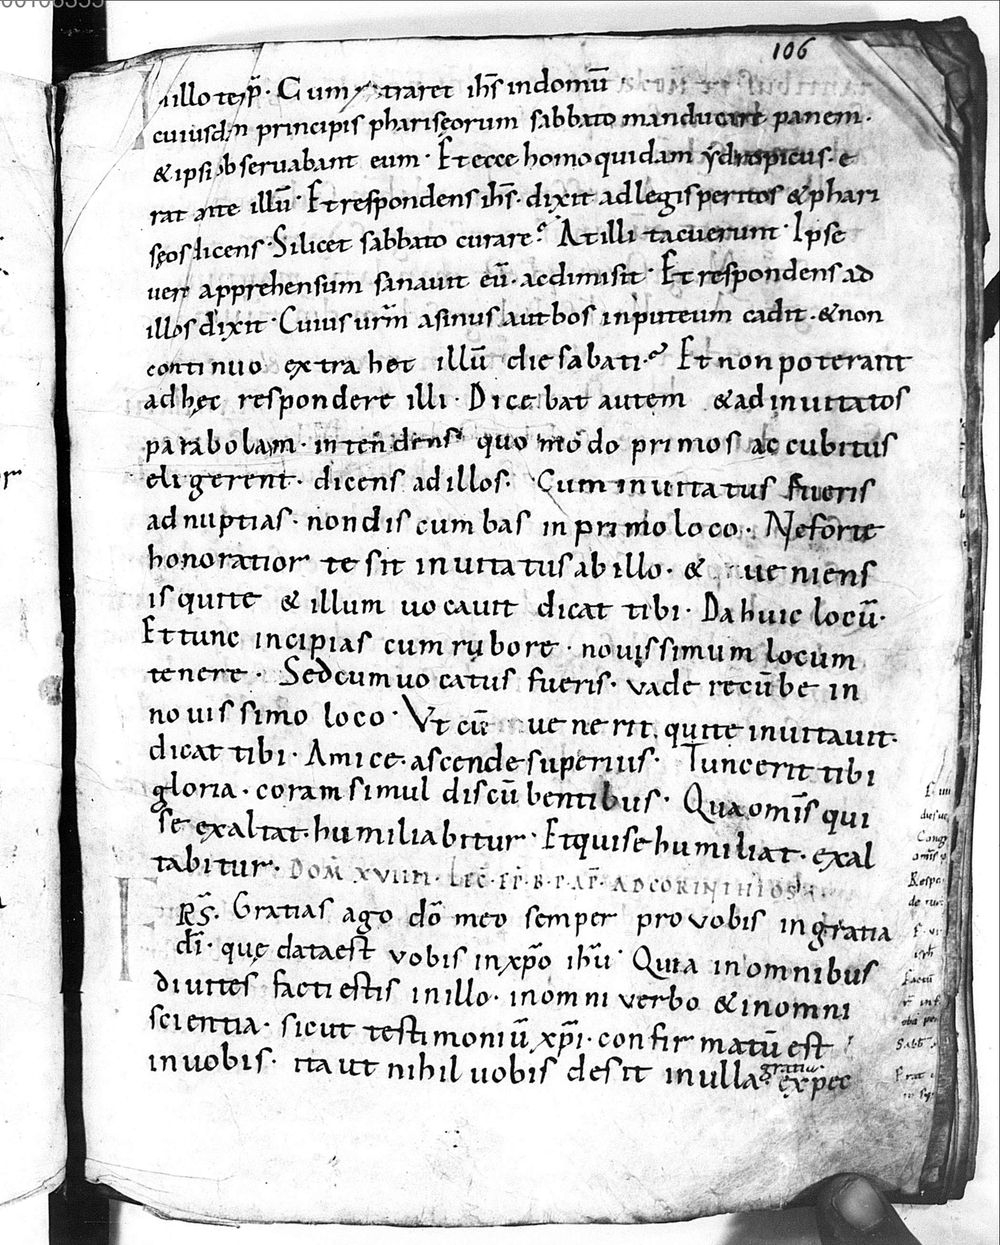 106
illo teꝑ̄· Cum traret ihs̄ in domū
cuiusdā principis phariseorum sabbato manducare panem·
& ipsi observabant eum· Et ecce homo quidam ydropicus· e
rat ante illū· Et respondens ihs̄· dixit ad legisperitos & phari
sęos dicens· Si licet sabbato curare? At illi tacuerunt· Ipse
vero apprehensum sanavit eū· ac dimisit· Et respondens ad
illos dixit· Cuius urm̄ asinus aut bos in puteum cadit· & non
continuo extrahet illū die sabati? Et non poterant
ad hęc respondere illi· Dicebat autem & ad inuitatos
parabolam· intendens quomodo primos accubitus
eligerent· dicens ad illos· Cum inuitatus fueris
ad nuptias· non discumbas in primo loco· Ne forte
honoratior te sit inuitatus ab illo· & ueniens
is qui te & illum uocauit dicat tibi· Da huic locū·
Et tunc incipias cum rubore· nouissimum locum
tenere· Sed cum uocatus fueris· vade recūbe in
nouissimo loco· Vt cū uenerit, qui te inuitauit·
dicat tibi· Amice· ascende superius· Tunc erit tibi
gloria· coram simul discūbentibus· Qua omīs qui
se exaltat· humiliabitur· Et qui se humiliat· exal
tabitur· DOM̄ XVIIII· LEC̄· EP̄· B· P· AP̄· AD CORINTHIOS
F
R̄S̄· Gratias ago dō meo semper pro vobis in gratia
dī· quę data est vobis in xp̄o ihū· Quia in omnibus
diuites facti estis in illo· in omni verbo & in omni
scientia· sicut testimoniū xp̄i· confirmatū est
in uobis· ita ut nihil uobis desit in ulla gratia· expec